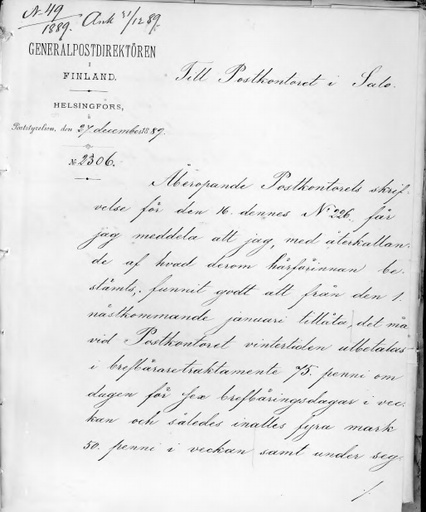 N. 49
1889. Ank 31/12 89.
GENERALPOSTDIREKTÖREN
i
FINLAND.
HELSINGFORS,
Poststyrelsen, den 27 december 1889.
№ 2306.
Till Postkontoret i Salo.
Åberopande Postkontorets skrif-
velse för den 16. dennes No 226, får
jag meddela att jag, med återkallan-
de af hvad derom härförinnan be-
stämts, funnit godt att från den 1.
nästkommande januari tillåta, det må
vid Postkontoret vintertiden utbetalas
i brefbäraretraktamente 75. penni om
dagen för sex brefbäringsdagar i vec-
kan och således inalles fyra mark
50. penni i veckan samt under seg-
./.